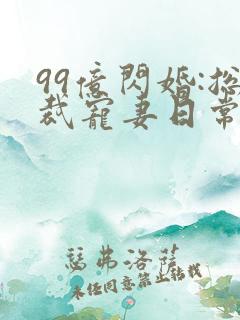 99億閃婚:總
裁寵妻日常
瑟弗洛薩
未经同意禁止转载